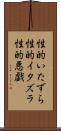 性的いたずら
性的イタズラ
性的悪戯